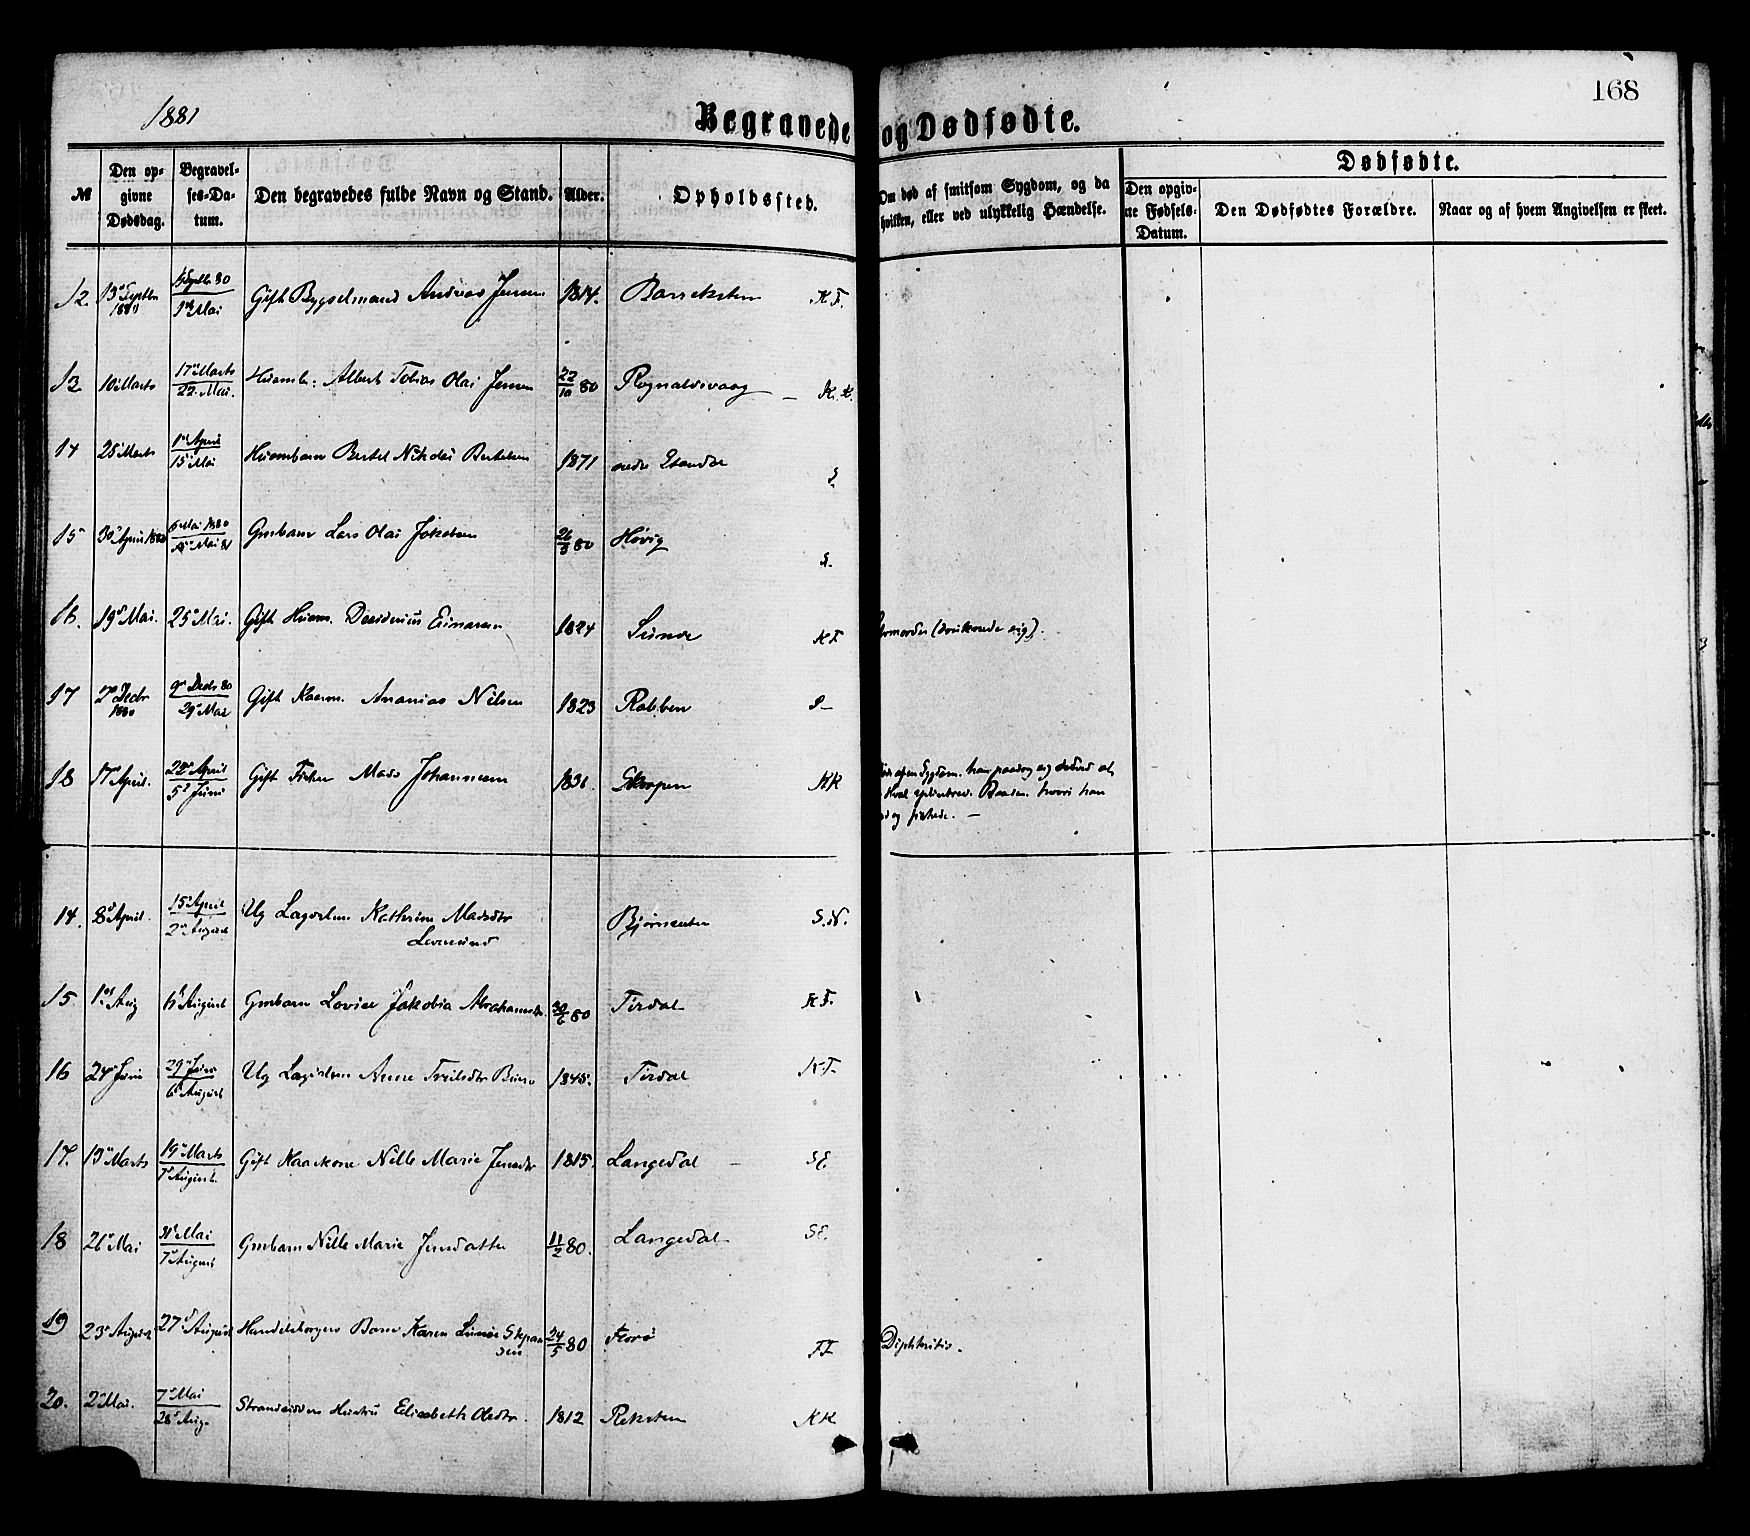 168
1881
Begravede og Dødfødte.
№
Den opgivne Dødsdag.
Begravelses-Datum.
Den begravedes fulde Navn og Stand.
Alder.
Opholdssted.
Om død af smitsom Sygdom, og da hvilken, eller ved ulykkelig Hændelse.
Dødfødte.
Den opgivne Fødsels-Datum.
Den Dødfødtes Forældre.
Naar og af hvem Angivelsen er skeet.
12. 13 Septbr 1880 Septbr 80 Mai Gift Bygselmand Andreas Jensen 1814. Barreksten K F.
13 10 Marts 17 Marts 22 Mai. Huusmb: Albert Tobias Olai Jensen 22/10 80 Rognaldsvaag K. K.
14 25 Marts 1 April 15 Mai Huusmbarn Bertel Nikolai Bertelsen 1871 nedre Standal
15 30 April 1880 6 Mai 1880 Mai 81 Gmbarn Lars Olai Jakobsen 26/3 80 Høvig
16. 19 Mai. 25 Mai. Gift Huusm. Desiderius Einarsen 1824 Sunde K F (druknede sig).
17 2 Decbr 1880 9 Decbr 80 29 Mai Gift Kaarm. Ananias Nilsen 1823 Rabben
18 17 April. 22 April 5 Juni Gift Fisker Mads Johannesen 1831. Skorpen KK
14. 8 April. 15 April 2 August Ug Lægdslem Katherine Madsdtr Bjørnseten S.N.
15 1 Aug 6 August Gmbarn Lovise Jakobia Abrahamsdtr. 30/6 80 Tirdal K F.
16 24 Juni 29 Juni 6 August Ug Lægdslem Anne Troilsdtr 1845. Tirdal K F.
17. 13 Marts 19 Marts 7 August. Gift Kaarkone Nille Marie Jensdtr 1815. Langedal SE.
18 26 Mai 31 Mai 7 August Gmbarn Nille Marie Jensdatter 11/2 80. Langedal SE.
19 23 August 27 August Handelsborgers Barn Karen 24/5 80 Florø FF Diphteritis.
20. 2 Mai. 7 Mai 28 Aug. Strandsidders Hustru Elisabeth Olsdtr. 1812 Reksten KK